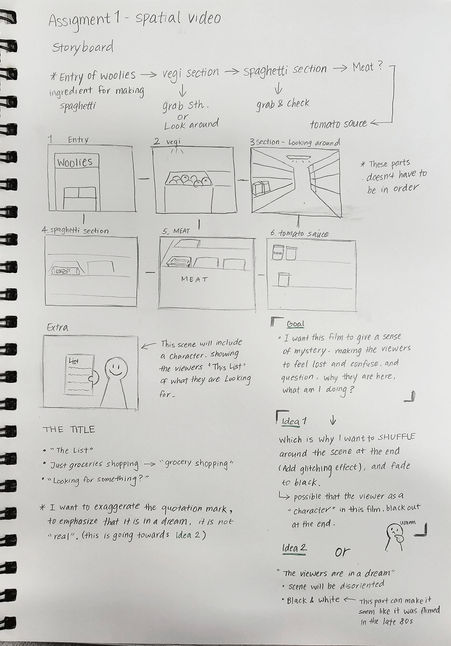 Assigment 1 - spatial video
Storyboard
* Entry of woolies → vegi section → spaghetti section → Meat?
ingredient for making
spaghetti
grab sth.
or
Look around
grab & check
tomato sauce
1 Entry
WOOLIES
2 vegi
3 Section - Looking around
* These parts
doesn't have to
be in order
4 spaghetti section
5, MEAT
MEAT
6. tomato sauce
Extra
List
← This scene will include
a character. showing
the viewers "This List"
of what they are Looking
for.
Goal
• I want this film to give a sense
of mystery. making the viewers
to feel lost and confuse, and
question. why they are here,
what am I doing?
THE TITLE
• "The List"
• Just groceries shopping → "grocery shopping"
• "Looking for something?"
* I want to exaggerate the quotation mark,
to emphasize that it is in a dream, it is not
"real". (this is going towards Idea 2)
Idea 1 ↓
which is why I want to SHUFFLE
around the scene at the end
(Add glitching effect), and fade
to black.
↳ possible that the viewer as a
"character" in this film. blackout
at the end.
Idea 2 or
"The viewers are in a dream"
• scene will be disoriented
• Black & white ← This part can make it
seem like it was filmed
in the late 80s